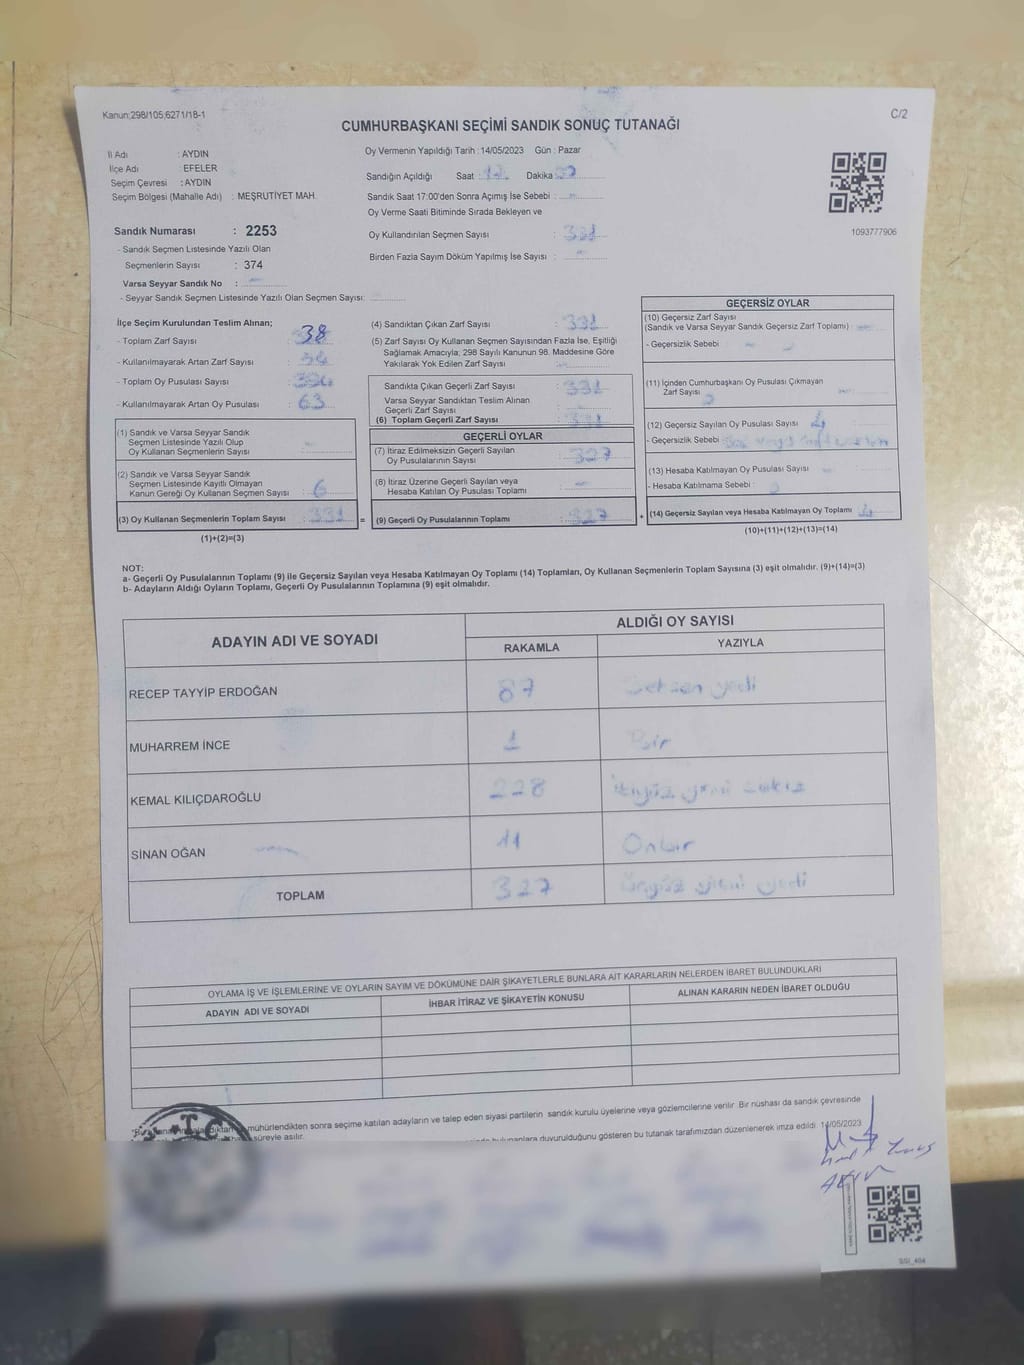 Kanun;298/105;6271/18-1
C/2
CUMHURBAŞKANI SEÇİMİ SANDIK SONUÇ TUTANAĞI
İl Adı : AYDIN
İlçe Adı : EFELER
Seçim Çevresi : AYDIN
Seçim Bölgesi (Mahalle Adı) : MEŞRUTİYET MAH.
Sandık Numarası : 2253
- Sandık Seçmen Listesinde Yazılı Olan
Seçmenlerin Sayısı : 374
Varsa Seyyar Sandık No :
- Seyyar Sandık Seçmen Listesinde Yazılı Olan Seçmen Sayısı:
Oy Vermenin Yapıldığı Tarih :14/05/2023 Gün : Pazar
Sandığın Açıldığı Saat : Dakika
Sandık Saat 17:00'den Sonra Açımış İse Sebebi :
Oy Verme Saati Bitiminde Sırada Bekleyen ve
Oy Kullandırılan Seçmen Sayısı : 331
Birden Fazla Sayım Döküm Yapılmış İse Sayısı :
1093777906
İlçe Seçim Kurulundan Teslim Alınan;
- Toplam Zarf Sayısı : 38
- Kullanılmayarak Artan Zarf Sayısı :
- Toplam Oy Pusulası Sayısı : 394
- Kullanılmayarak Artan Oy Pusulası : 63
(1) Sandık ve Varsa Seyyar Sandık
Seçmen Listesinde Yazılı Olup
Oy Kullanan Seçmenlerin Sayısı :
(2) Sandık ve Varsa Seyyar Sandık
Seçmen Listesinde Kayıtlı Olmayan
Kanun Gereği Oy Kullanan Seçmen Sayısı : 6
(3) Oy Kullanan Seçmenlerin Toplam Sayısı : 331
(1)+(2)=(3)
(4) Sandıktan Çıkan Zarf Sayısı : 331
(5) Zarf Sayısı Oy Kullanan Seçmen Sayısından Fazla İse, Eşitliği
Sağlamak Amacıyla; 298 Sayılı Kanunun 98. Maddesine Göre
Yakılarak Yok Edilen Zarf Sayısı :
Sandıkta Çıkan Geçerli Zarf Sayısı : 331
Varsa Seyyar Sandıktan Teslim Alınan
Geçerli Zarf Sayısı :
(6) Toplam Geçerli Zarf Sayısı : 331
GEÇERLİ OYLAR
(7) İtiraz Edilmeksizin Geçerli Sayılan
Oy Pusulalarının Sayısı : 327
(8) İtiraz Üzerine Geçerli Sayılan veya
Hesaba Katılan Oy Pusulası Toplamı :
= (9) Geçerli Oy Pusulalarının Toplamı : 327
GEÇERSİZ OYLAR
(10) Geçersiz Zarf Sayısı
(Sandık ve Varsa Seyyar Sandık Geçersiz Zarf Toplamı) :
- Geçersizlik Sebebi :
(11) İçinden Cumhurbaşkanı Oy Pusulası Çıkmayan
Zarf Sayısı :
(12) Geçersiz Sayılan Oy Pusulası Sayısı : 4
- Geçersizlik Sebebi
(13) Hesaba Katılmayan Oy Pusulası Sayısı :
- Hesaba Katılmama Sebebi :
+ (14) Geçersiz Sayılan veya Hesaba Katılmayan Oy Toplamı : 4
(10)+(11)+(12)+(13)=(14)
NOT:
a- Geçerli Oy Pusulalarının Toplamı (9) ile Geçersiz Sayılan veya Hesaba Katılmayan Oy Toplamı (14) Toplamları, Oy Kullanan Seçmenlerin Toplam Sayısına (3) eşit olmalıdır. (9)+(14)=(3)
b- Adayların Aldığı Oyların Toplamı, Geçerli Oy Pusulalarının Toplamına (9) eşit olmalıdır.
ADAYIN ADI VE SOYADI
ALDIĞI OY SAYISI
RAKAMLA YAZIYLA
RECEP TAYYİP ERDOĞAN 87 Seksen yedi
MUHARREM İNCE 1 Bir
KEMAL KILIÇDAROĞLU 228 ikiyüz yirmi sekiz
SİNAN OĞAN 11 Onbir
TOPLAM 327 Üçyüz yirmi yedi
OYLAMA İŞ VE İŞLEMLERİNE VE OYLARIN SAYIM VE DÖKÜMÜNE DAİR ŞİKAYETLERLE BUNLARA AİT KARARLARIN NELERDEN İBARET BULUNDUKLARI
ADAYIN ADI VE SOYADI İHBAR İTİRAZ VE ŞİKAYETİN KONUSU ALINAN KARARIN NEDEN İBARET OLDUĞU
mühürlendikten sonra seçime katılan adayların ve talep eden siyasi partilerin sandık kurulu üyelerine veya gözlemcilerine verilir. Bir nüshası da sandık çevresinde
süreyle asılır.
bulunanlara duyurulduğunu gösteren bu tutanak tarafımızdan düzenlenerek imza edildi. 14/05/2023
T.C.
SSI_404